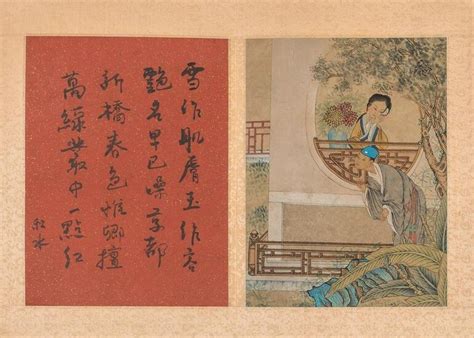 雪作肌膚玉作容
艷名早已噪京都
新橋春色惟卿擅
萬綠叢中一點紅